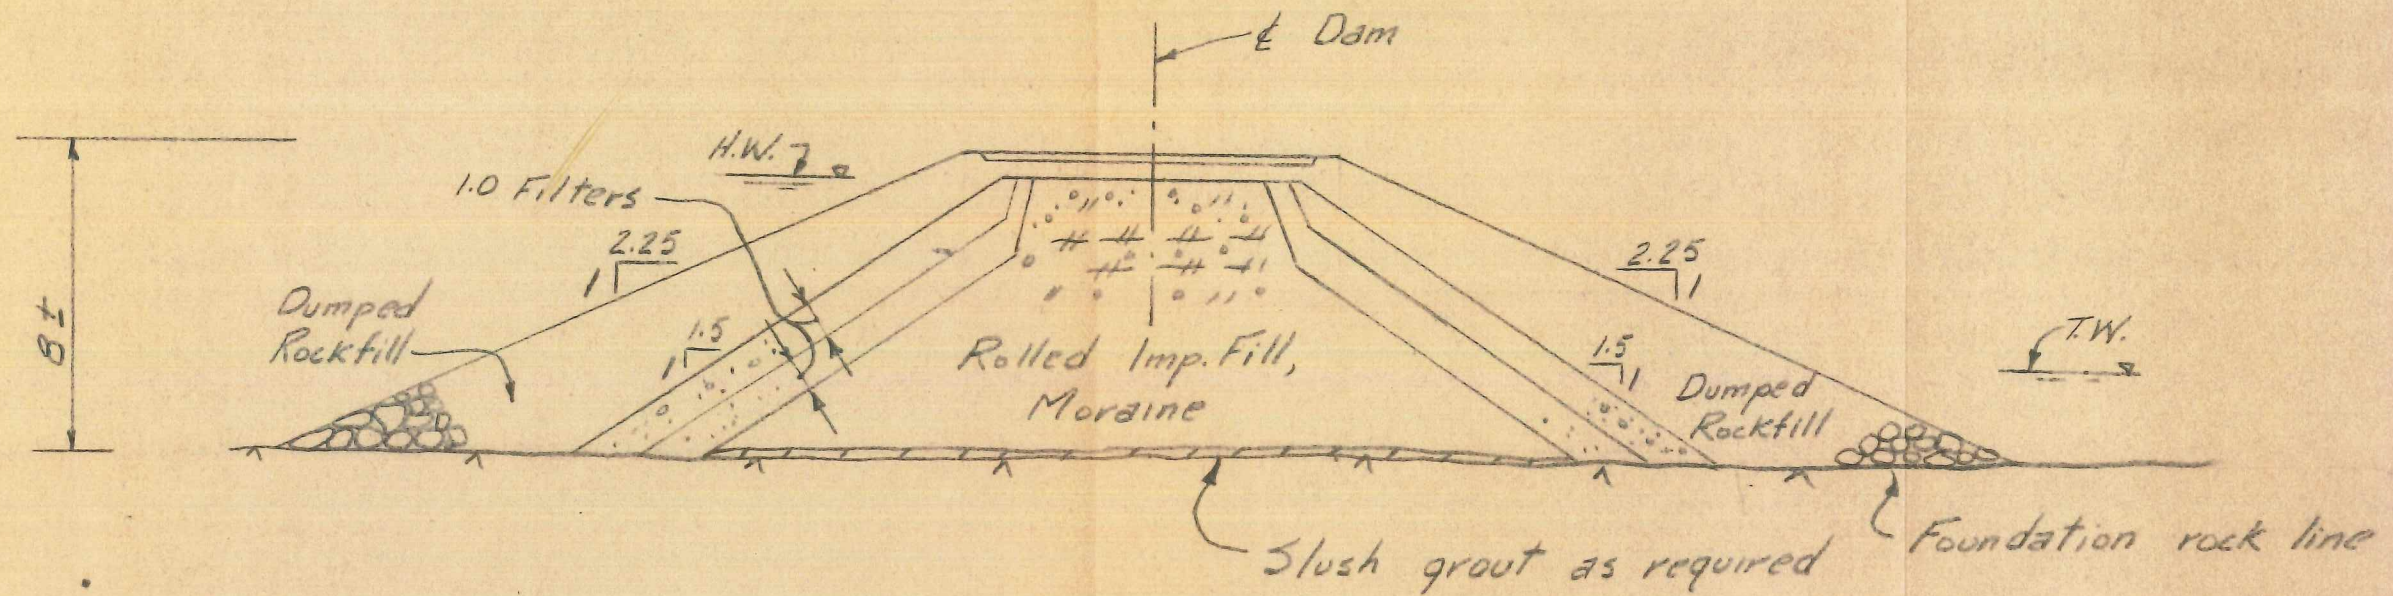 ℄ Dam
H.W.
1.0 Filters
2.25
1
2.25
1
8±
Dumped
Rockfill
1.5
1
Rolled Imp. Fill,
Moraine
1.5
1
T.W.
Dumped
Rockfill
Slush grout as required
Foundation rock line